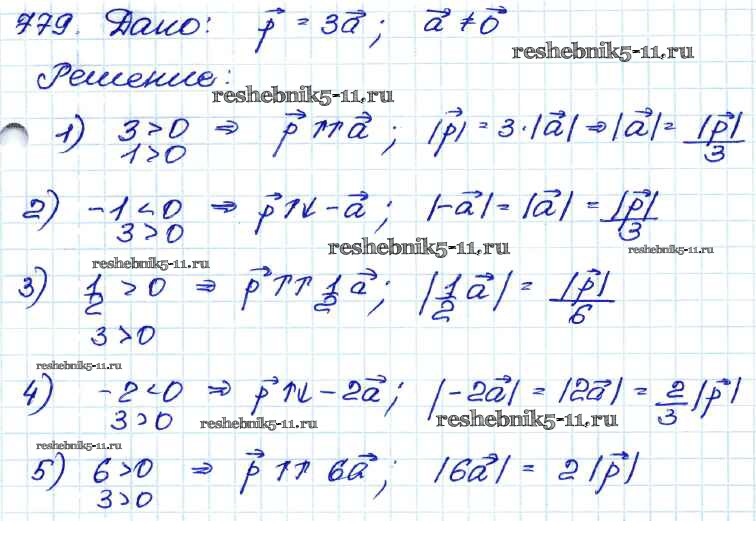 779. Дано: p⃗ = 3a⃗; a⃗ ≠ 0⃗
reshebnik5-11.ru
Решение:
reshebnik5-11.ru
1) 3 > 0 ⇒ p⃗ ↑↑ a⃗; |p⃗| = 3·|a⃗| ⇒ |a⃗| = |p⃗|/3
1 > 0
2) -1 < 0 ⇒ p⃗ ↑↓ -a⃗; |-a⃗| = |a⃗| = |p⃗|/3
3 > 0
reshebnik5-11.ru
reshebnik5-11.ru
reshebnik5-11.ru
3) 1/2 > 0 ⇒ p⃗ ↑↑ 1/2 a⃗; |1/2 a⃗| = |p⃗|/6
3 > 0
reshebnik5-11.ru
4) -2 < 0 ⇒ p⃗ ↑↓ -2a⃗; |-2a⃗| = |2a⃗| = 2/3 |p⃗|
3 > 0
reshebnik5-11.ru
reshebnik5-11.ru
reshebnik5-11.ru
5) 6 > 0 ⇒ p⃗ ↑↑ 6a⃗; |6a⃗| = 2|p⃗|
3 > 0